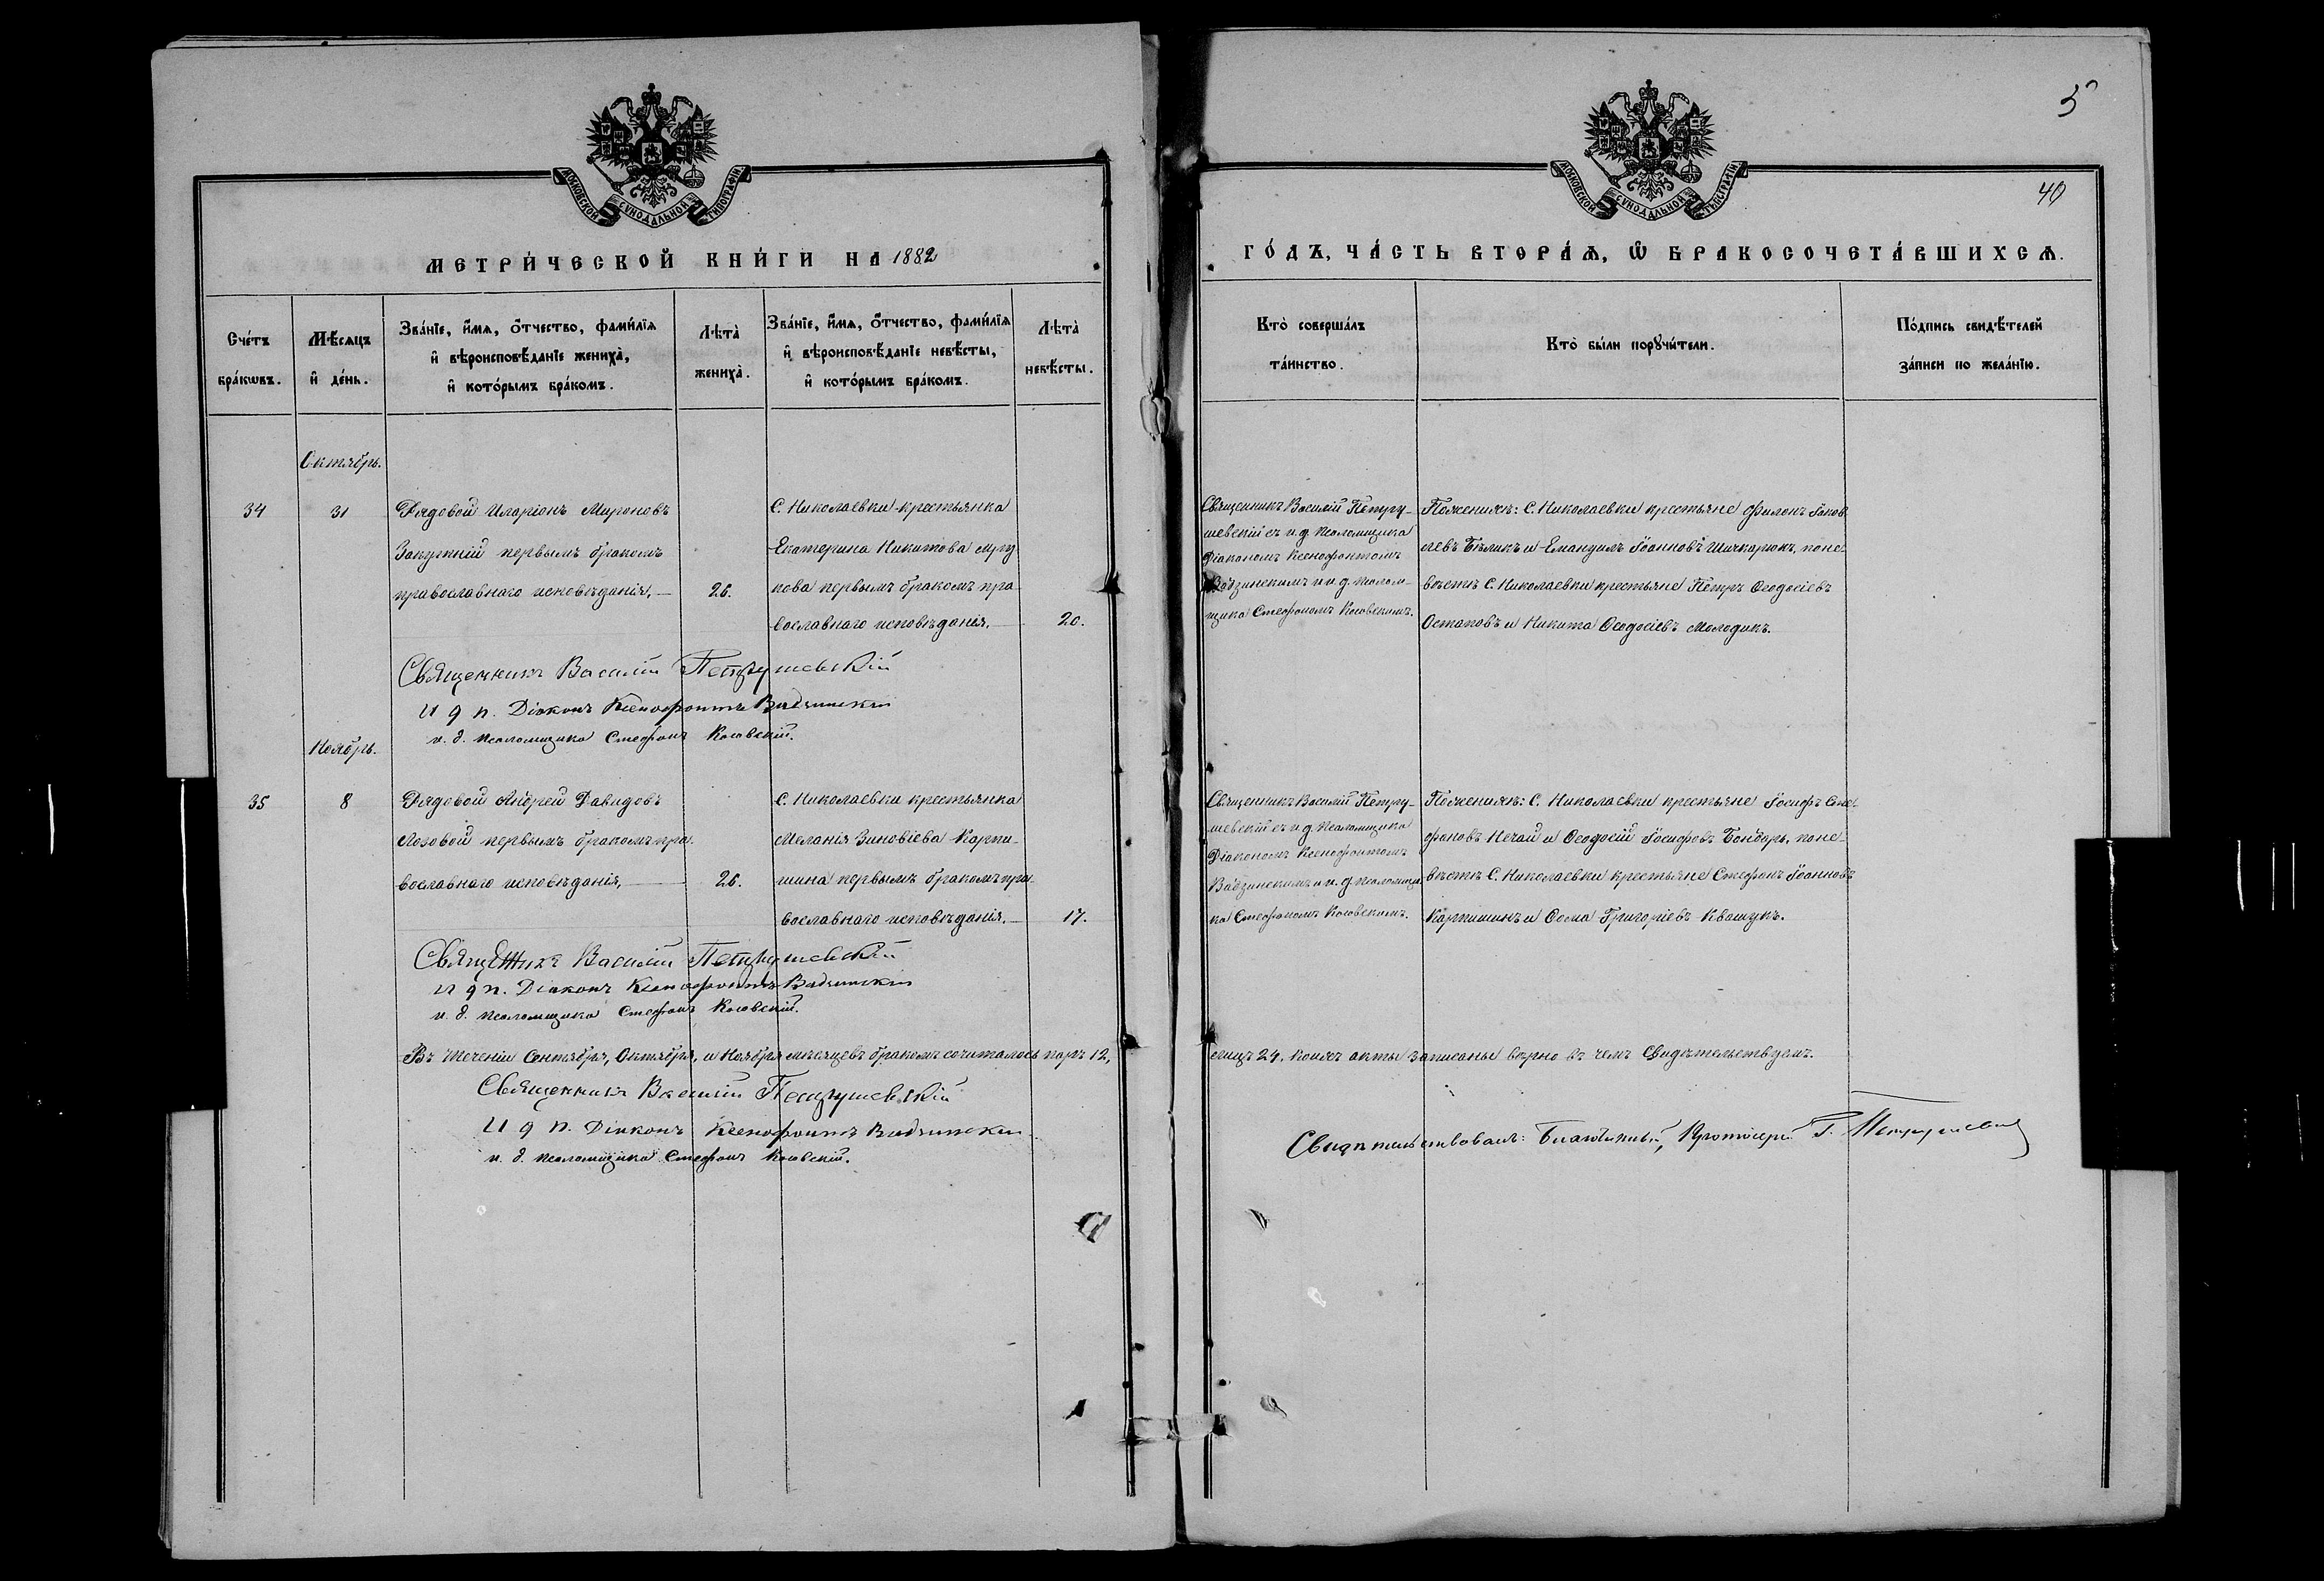 МОСКОВСКОЙ СѴНОДАЛЬНОЙ ТИПОГРАФІИ
МЕТРИ́ЧЕСКОЙ КНИ́ГИ НА 1882
Сче́тъ бра́кѡвъ.
Мѣ́сяцъ и҆ де́нь.
Зва́нїе, и҆́мѧ, ѻ҆́тчество, фами́лїѧ
и҆ вѣроисповѣ́данїе жениха̀,
и҆ кото́рымъ бра́комъ.
Лѣта̀ жениха̀.
Зва́нїе, и҆́мѧ, ѻ҆́тчество, фами́лїѧ
и҆ вѣроисповѣ́данїе невѣ́сты,
и҆ кото́рымъ бра́комъ.
Лѣта̀ невѣ́сты.
Октябрь.
34
31
Рядовой Иларіонъ Мироновъ
Закужній первымъ бракомъ
православнаго исповѣданія.
26.
С. Николаевки крестьянка
Екатерина Никитова
кова первымъ бракомъ пра-
вославнаго исповѣданія.
20.
Священникъ Василій Петрушевскій
И д п. Діаконъ Ксенофонтъ Вадзинскій
и. д. псаломщика Стефанъ Косовскій.
Ноябрь.
35
8
Рядовой Андрей Давидовъ
Лозовой первымъ бракомъ пра-
вославнаго исповѣданія,
26.
С. Николаевки крестьянка
Меланія Зиновіева Карпи-
шина первымъ бракомъ пра-
вославнаго исповѣданія.
17.
Священникъ Василій Петрушевскій
И д п. Діаконъ Ксенофонтъ Вадзинскій
и. д. псаломщика Стефанъ Косовскій.
Въ теченіи Сентября, Октября, и Ноября мѣсяцевъ бракомъ сочиталось паръ 12,
Священникъ Василій Петрушевскій
И д п. Діаконъ Ксенофонтъ Вадзинскій
и. д. псаломщика Стефанъ Косовскій.
5
40
МОСКОВСКОЙ СѴНОДАЛЬНОЙ ТИПОГРАФІИ
ГО́ДЪ, ЧА́СТЬ ВТОРА́Ѧ, Ѡ҆ БРАКОСОЧЕТА́ВШИХСѦ.
Кто̀ соверша́лъ
та́инство.
Кто̀ бы́ли порꙋчи́тели.
По́дпись свидѣ́телей
за́писи по жела́нїю.
Священникъ Василій Петру-
шевскій съ и. д. псаломщика
Діакономъ Ксенофонтомъ
Вадзинскимъ и и. д. псалом-
щика Стефаномъ Косовскимъ.
По женихѣ: С. Николаевки крестьяне Филонъ Іаков-
левъ Бѣликъ и Емануилъ Іоанновъ Шичкарюкъ, по не-
вѣстѣ С. Николаевки крестьяне Петръ Ѳеодосіевъ
Остаповъ и Никита Ѳеодосіевъ Молодикъ.
Священникъ Василій Петру-
шевскій съ и. д. псаломщика
Діакономъ Ксенофонтомъ
Вадзинскимъ и и. д. псаломщи-
ка Стефаномъ Косовскимъ.
По женихѣ: С. Николаевки крестьяне Іосифъ Сте-
фановъ Нечай и Ѳеодосій Іосифовъ Бондарь, по не-
вѣстѣ С. Николаевки крестьяне Стефанъ Іоанновъ
Карпишинъ и Ѳома Григоріевъ Квашукъ.
лицъ 24, коихъ акты записаны вѣрно въ чемъ свидѣтельствуемъ.
Свидѣтельствовалъ: Благочинный, Протоіерей Г. Петрушевскій